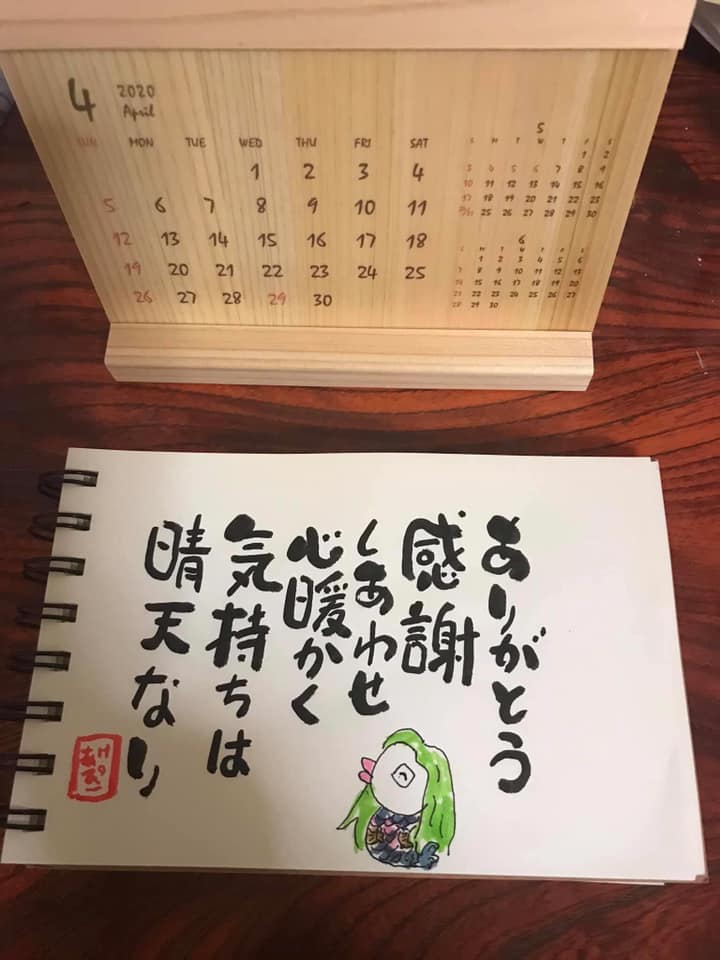 4 2020
April
SUN MON TUE WED THU FRI SAT
1 2 3 4
5 6 7 8 9 10 11
12 13 14 15 16 17 18
19 20 21 22 23 24 25
26 27 28 29 30
5
S M T W T F S
1 2
3 4 5 6 7 8 9
10 11 12 13 14 15 16
17 18 19 20 21 22 23
24/31 25 26 27 28 29 30
6
S M T W T F S
1 2 3 4 5 6
7 8 9 10 11 12 13
14 15 16 17 18 19 20
21 22 23 24 25 26 27
28 29 30
ありがとう
感謝
しあわせ
心暖かく
気持ちは
晴天なり